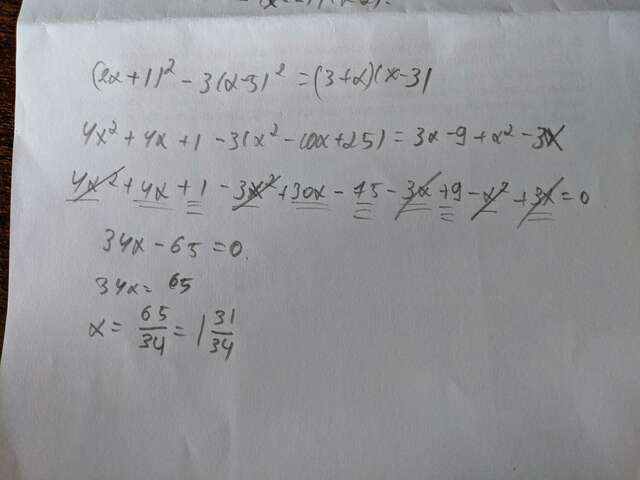 (2x+1)² - 3(x-5)² = (3+x)(x-3)
4x² + 4x + 1 - 3(x² - 10x + 25) = 3x - 9 + x² - 3x
4x² + 4x + 1 - 3x² + 30x - 75 - 3x + 9 - x² + 3x = 0
34x - 65 = 0.
34x = 65
x = 65/34 = 1 31/34